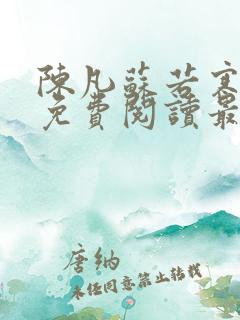 陳凡蘇若寒
免費閱讀最
唐納
未經同意禁止轉載